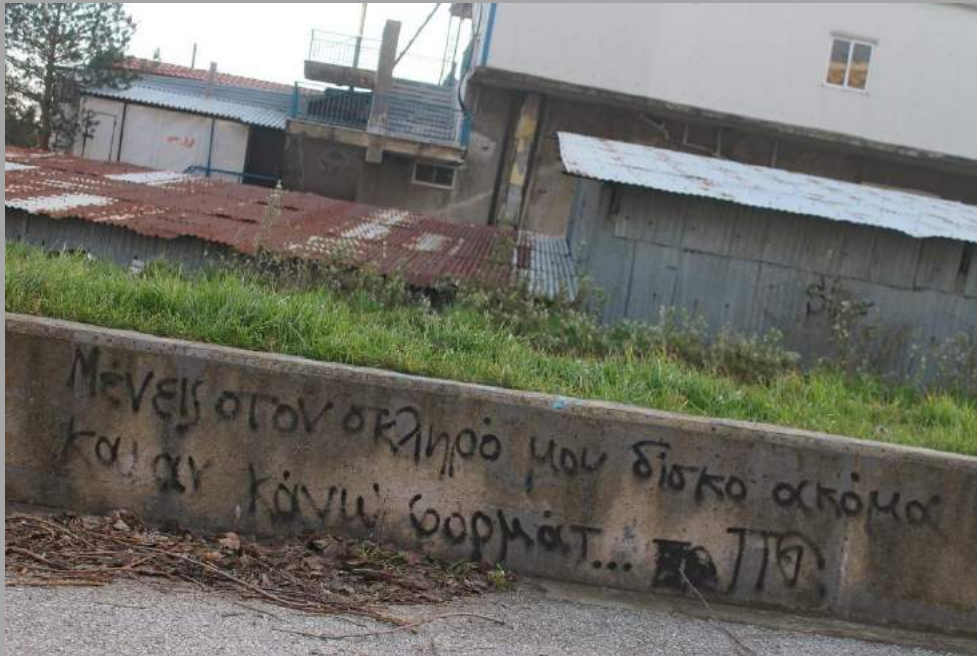 Μένεις στον σκληρό μου δίσκο ακόμα
και αν κάνω φορμάτ...